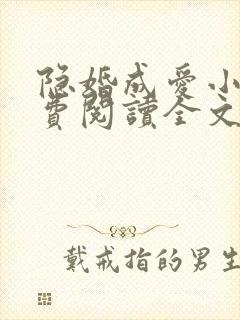 隐婚成爱小
费阅讀全文
戴戒指的男生